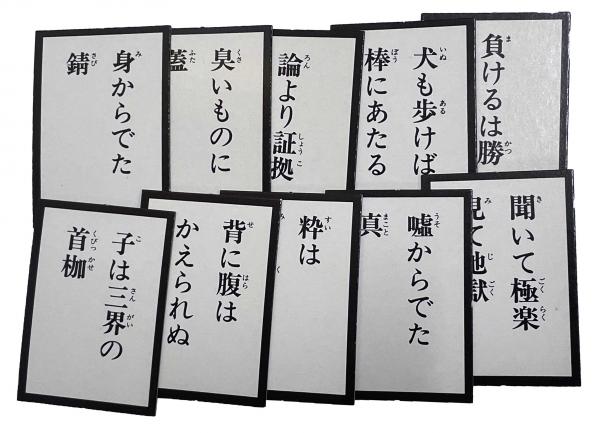 負けるは勝
犬も歩けば
棒にあたる
論より証拠
臭いものに
蓋
身からでた
錆
聞いて極楽
見て地獄
嘘からでた
真
粋は
背に腹は
かえられぬ
子は三界の
首枷